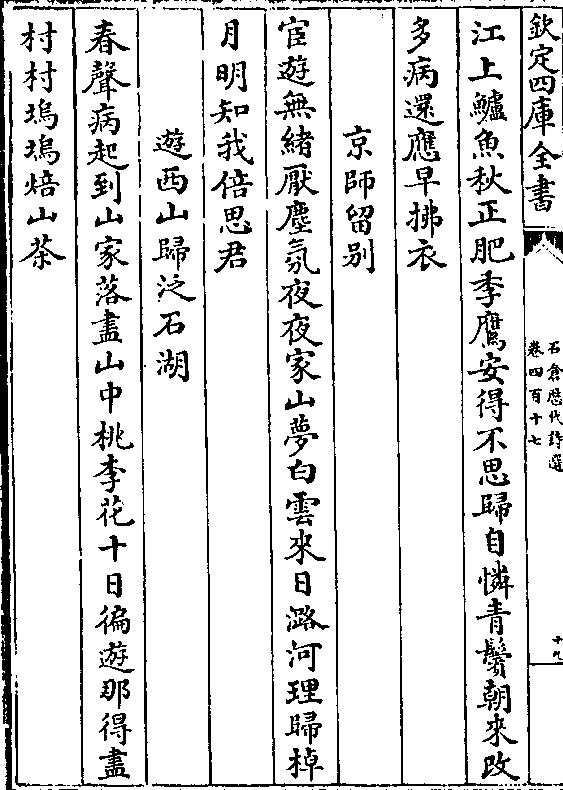 欽定四庫全書
石倉歴代詩選
卷四百十七
十九
江上鱸魚秋正肥季鷹安得不思歸自憐青鬢朝來改
多病還應早拂衣
京師留别
宦遊無緒厭塵氛夜夜家山夢白雲來日潞河理歸棹
月明知我倍思君
遊西山歸泛石湖
春聲病起到山家落盡山中桃李花十日徧遊那得盡
村村塢塢焙山茶